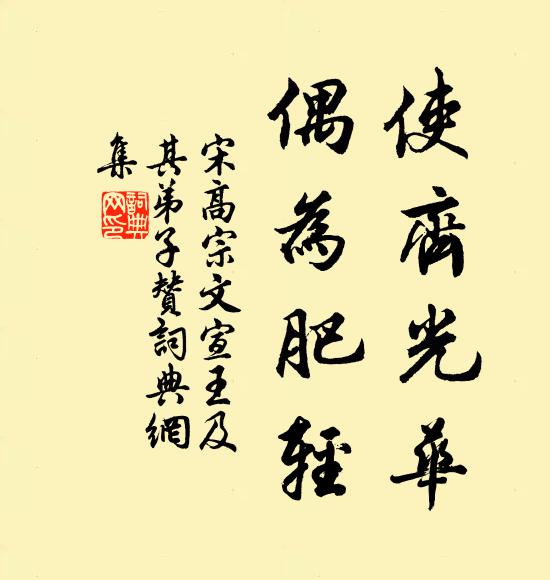 使齊光華
偶為肥輕
宋高宗文宣王及
其弟子贊詞典網
集
詞典網印